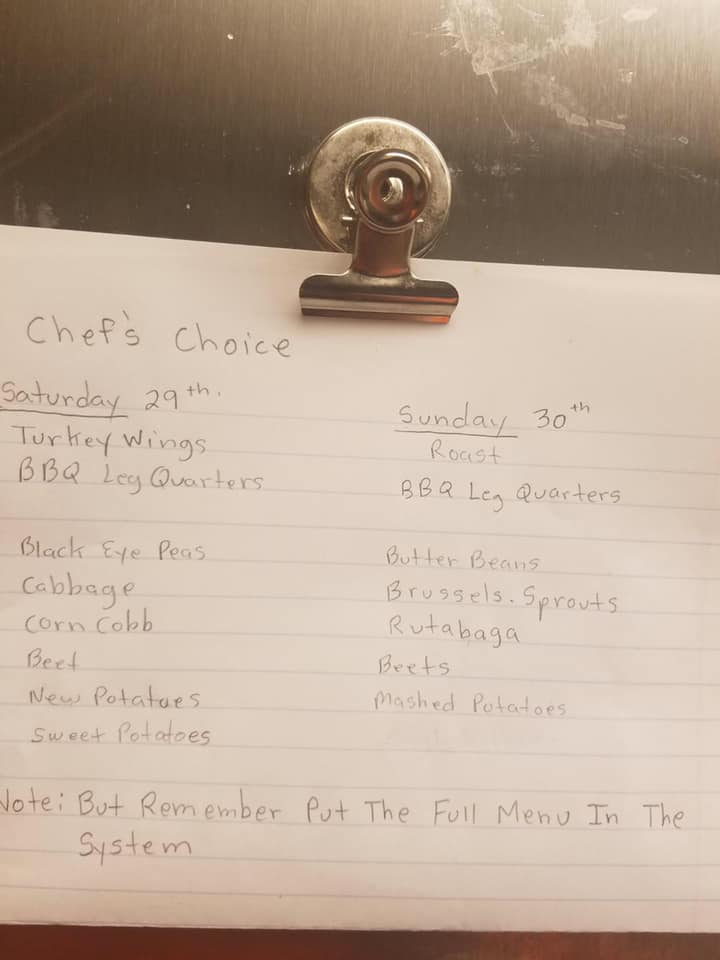 Chef's Choice
Saturday 29th.
Turkey Wings
BBQ Leg Quarters
Black Eye Peas
Cabbage
Corn Cobb
Beet
New Potatoes
Sweet Potatoes
Sunday 30th
Roast
BBQ Leg Quarters
Butter Beans
Brussels. Sprouts
Rutabaga
Beets
Mashed Potatoes
Note: But Remember Put The Full Menu In The
System